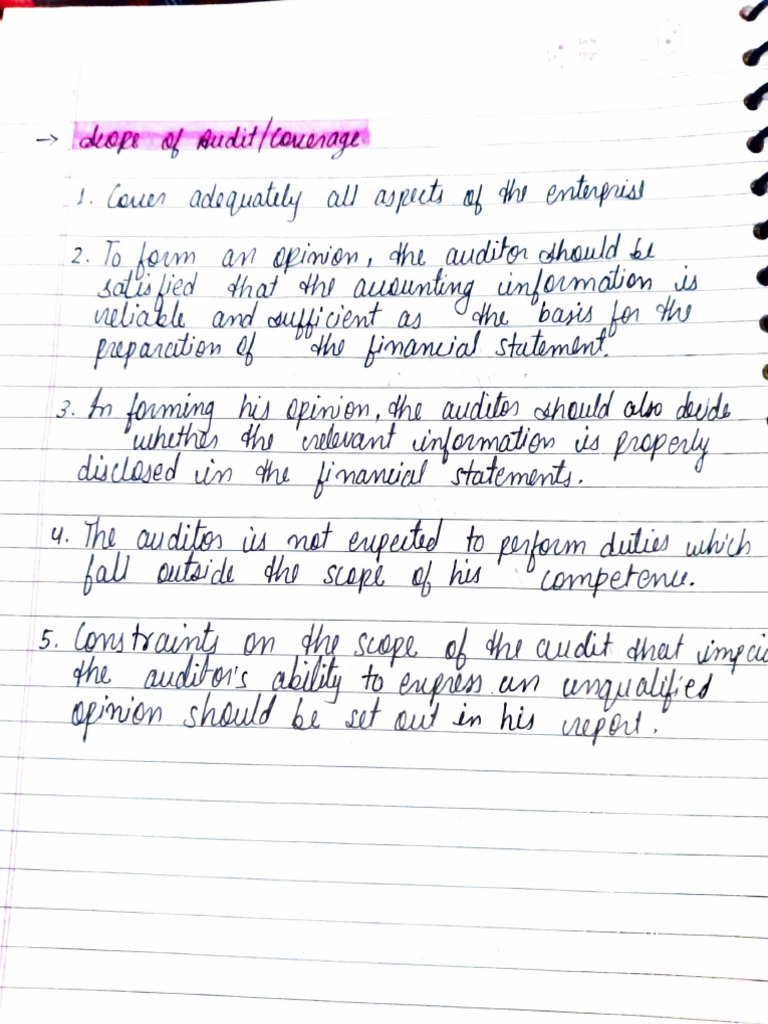 → Scope of Audit/Coverage
1. Cover adequately all aspects of the enterprise
2. To form an opinion, the auditor should be
satisfied that the accounting information is
reliable and sufficient as the basis for the
preparation of the financial statement.
3. In forming his opinion, the auditor should also decide
whether the relevant information is properly
disclosed in the financial statements.
4. The auditor is not expected to perform duties which
fall outside the scope of his competence.
5. Constraints on the scope of the audit that
the auditor's ability to express an unqualified
opinion should be set out in his report.